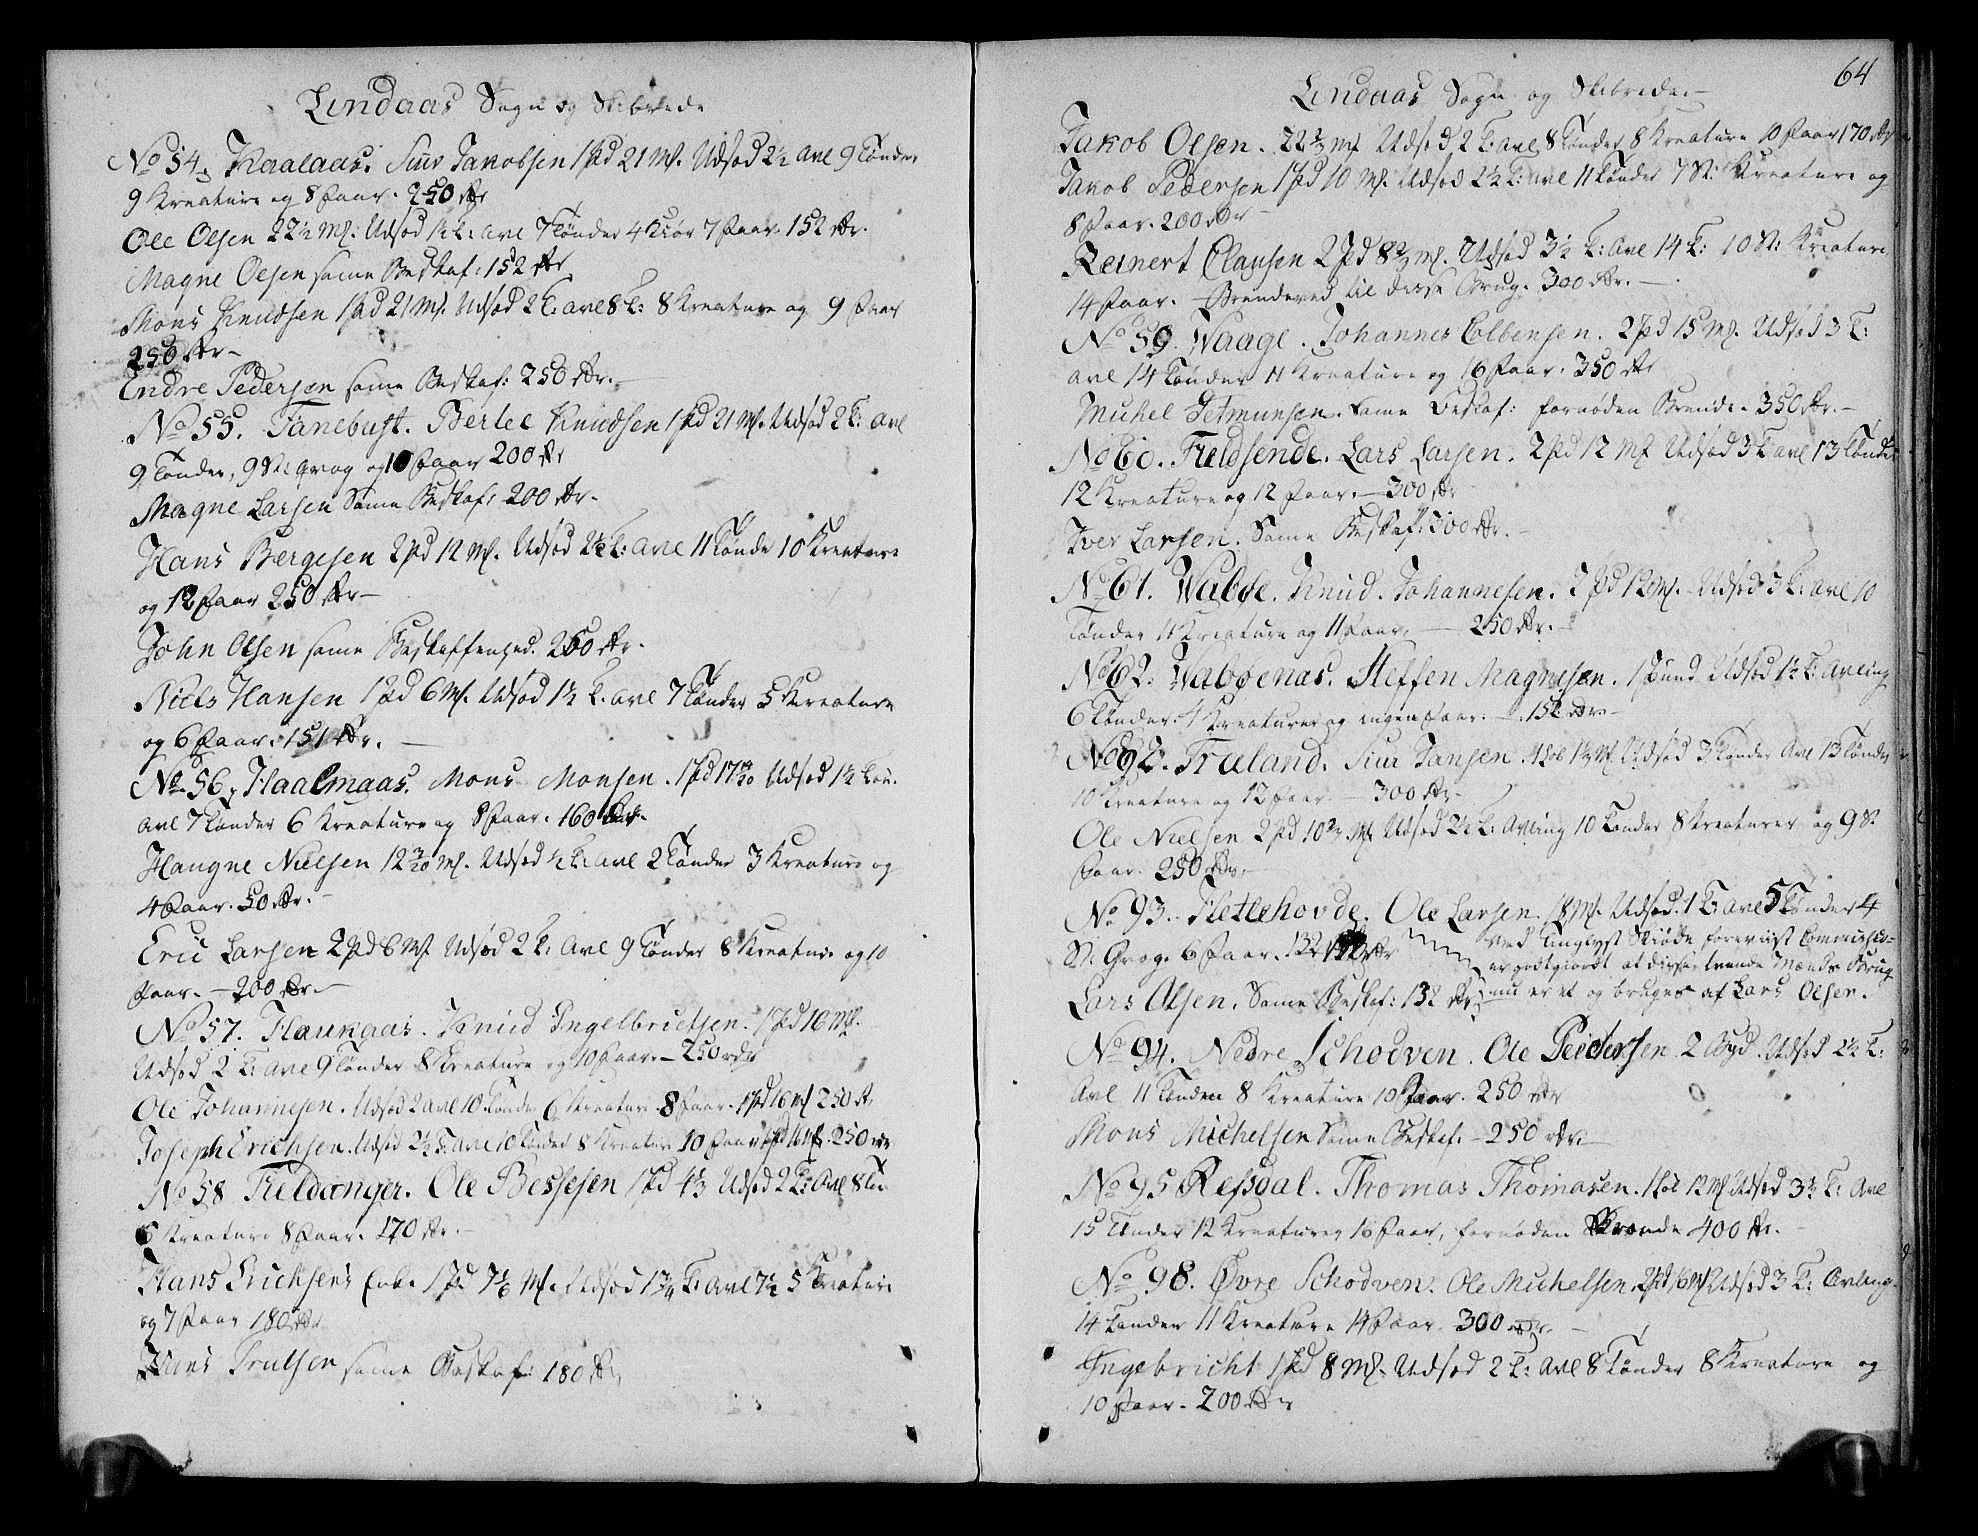 Lindaas Sogn og Skibrede
No 54. Kaalaas. Siur Jakobsen 1 Pd 21 Mk. Udsæd 2½ avl 9 Tønder
9 Kreature og 8 Faar. 250 Rdr
Ole Olsen 22½ Mk. Udsæd 1½ T: avl 7 Tønder 4 Kiør 7 Faar. 152 Rdr.
Magne Olsen same Beskaf: 152 Rdr
Mons Knudsen 1 Pd 21 Mk. Udsæd 2 T: avl 8 T: 8 Kreature og 9 Faar
250 Rdr –
Endre Pedersen same Beskaf: 250 Rdr. –
No 55. Fanebust. Berlee Knudsen 1 Pd 21 Mk. Udsæd 2 T: avl
9 Tønder, 9 St: qvæg og 10 Faar 200 Rdr
Magne Larsen Same Beskaf: 200 Rdr.
Hans Bergesen 2 Pd 12 Mk. Udsæd 2½ T: avl 11 Tønde 10 Kreature
og 12 Faar 250 Rdr –
John Olsen same Beskaffenhed. 260 Rdr.
Niels Hansen 1 Pd 6 Mk. Udsæd 1½ T. avl 7 Tønder 5 Kreature
og 6 Faar. 151 Rdr. –
No 56. Haalmaas. Mons Monsen. 1 Pd 17 Udsæd 1½ Tøn.
avl 7 Tønder 6 Kreature og 8 Faar. 160 Rdr.
Haugne Nielsen 12 Mk. Udsæd ½ T: avl 2 Tønder 3 Kreature og
4 Faar. 50 Rdr. –
Eric Larsen 2 Pd 6 Mk Udsæd 2 T: Avl 9 Tønder 8 Kreature og 10
Faar. – 200 Rdr. –
No 57. Haukaas. Knud Ingelbrietsen. 1 Pd 16 Mk.
Udsæd 2 T: avl 9 Tønder 8 Kreature og 10 Faar. – 250 rdr
Ole Johannesen. Udsæd 2 avl 10 Tønder 6 Kreature 8 Faar. 1 Pd 16 Mk 250 Rdr
Joseph Erichsen. Udsæd 2½ T: avl 10 Tønder 8 Kreature 10 Faar 1 Pd 16 Mk. 250 rdr
No 58 Fieldanger. Ole Bessesen 1 Pd 4⅓ Udsæd 2 T: Avl 8 Tøn
6 Kreature 8 Faar. 170 Rdr. –
Hans Ericksens Enke 1 Pd 7⅙ Mk. Udsæd 1¾ T: avl 7½ 5 Kreature
og 7 Faar 180 Rdr
Trulsen same Beskaf: 180 Rdr
64
Lindaas Sogn og Skibrede. –
Jakob Olsen. 22½ Mk Udsæd 2 T: avl 8 Tønder 8 Kreature 10 Faar 170 Rdr
Jakob Pedersen 1 Pd 10 Mk. Udsæd 2½ T: avl 11 Tønder 7 St: Kreature og
8 Faar. 200 Rdr –
Reinert Clausen 2 Pd 8⅔ Mk. Udsæd 3½ T: avl 14 T: 10 St: Kreature
14 Faar. Brændeved til disse Brug. 300 Rdr. –
No 59. Waage. Johannes Colbensen. 2 Pd 15 Mk. Udsæd 3 T:
avl 14 Tønder 11 Kreature og 16 Faar. 350 Rdr
Michel Detmunsen. Same Beskaf: fornøden Brende. 350 Rdr. –
No 60. Fieldsende. Lars Larsen. 2 Pd 12 Mk Udsæd 3 T avl 13 Tønder
12 Kreature og 12 Faar. – 300 Rdr
Iver Larsen. Same Beskaf: 300 Rdr. –
No 61. Wabøe. Knud Johannesen. 2 Pd 12 Mk. Udsæd 3 T: avl 10
Tønder 11 Kreature og 11 Faar, – 250 Rdr. –
No 62. Wabøenas. Steffen Magnesen. 1 Pund Udsæd 1½ T: Avling
6 Tønder. 4 Kreaturer og ingen Faar. – 152 Rdr –
No 92. Træland. Siur Jansen. 1 Løb Mk Udsæd 3 Tønder Avl 13 Tønder
10 Kreature og 12 Faar. – 300 Rdr –
Ole Nielsen 2 Pd 10⅔ Mk Udsæd 2½ T: Avling 10 Tønder 8 Kreaturer og 9 St
Faar. 250 Rdr –
No 93. Fletlehovde. Ole Larsen. 18 Mk. Udsæd. 1 T: avl 5 Tønder 4
St: Qvæg. 6 Faar. 132 Rdr
Ved Tinglyst Skiøde foreviist Commissio=
er godtgiordt at disse tvende Mænds Brug
Lars Olsen. Same Beskaf: 132 Rdr. nu er et og bruges af Lars Olsen.
No 94. Nedre Schodven. Ole Pedersen 2 Pd. Udsæd 2½ T:
Avl 11 Tønder 8 Kreature 10 Faar. 250 Rdr
Mons Michelsen Same Beskaf. – 250 Rdr. –
No 95 Refsdal. Thomas Thomasen. 1 Løb 12 Mk Udsæd 3½ T: Avl
15 Tønder 12 Kreaturer 16 Faar, fornøden Brende 400 Rdr. –
No 98. Øvre Schodven. Ole Michelsen. 2 Pd 16 Mk Udsæd 3 T: Avling
14 Tønder 11 Kreature 14 Faar. 300 Rdr. –
Ingebricht 1 Pd 8 Mk. Udsæd 2 T: Avl 8 Tønder 8 Kreature og
10 Faar. 200 Rdr